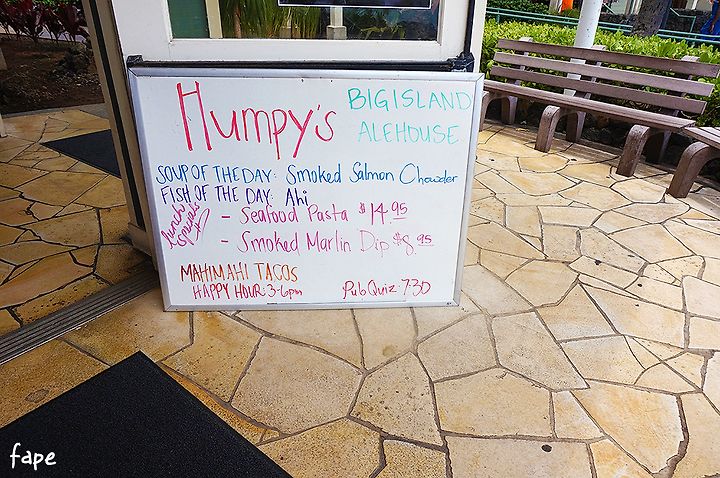 Humpy's
BIG ISLAND
ALEHOUSE
SOUP OF THE DAY: Smoked Salmon Chowder
FISH OF THE DAY: Ahi
lunch specials
- Seafood Pasta $14.95
- Smoked Marlin Dip $8.95
MAHIMAHI TACOS
HAPPY HOUR 3-6pm
Pub Quiz 7:30
fape